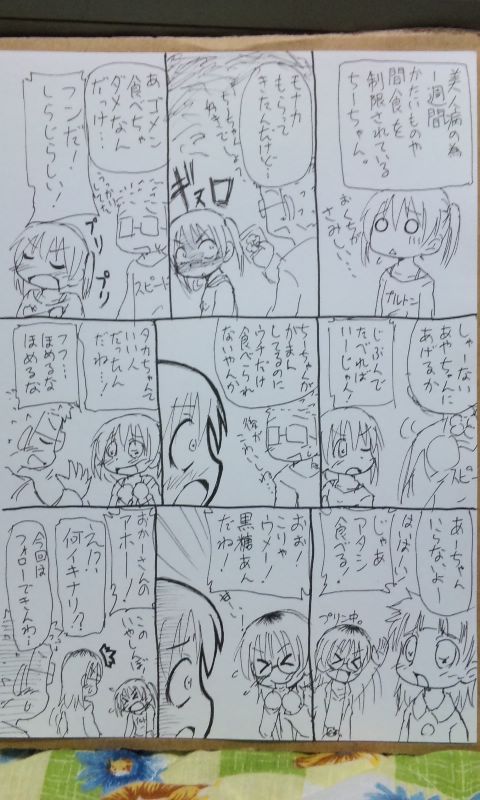 美人病の為
一週間
かたいものや
間食を
制限されている
ちーちゃん。
おくちが
さみしい…
カルトン
モナカ
もらって
きたんだけど…
ちーちゃんよぅ
ギヌロ
あ、ゴメン
食べちゃ
ダメなん
だっけ…
スピード
フンだ！
しらじらしい！
プリ
プリ
しゃーない
あやちゃんに
あげるか
スピー
じぶんで
たべれば
いーじゃん！
ちーちゃんが
がまん
してるのに
ウチだけ
食べられ
ないやんか
タカちゃんて
いい人
だったん
だね…
フッ…
ほめるな
ほめるな
あーちゃん
いらないよー
はばーん！
じゃあ
アタシン
食べる！
プリン中。
おお！
こりゃ
ウメー！
黒糖あん
だね！
おかーさんの
アホー！
スカ？
何イキナリ!?
このいやしんぼ
今回は
フォローできんわ！